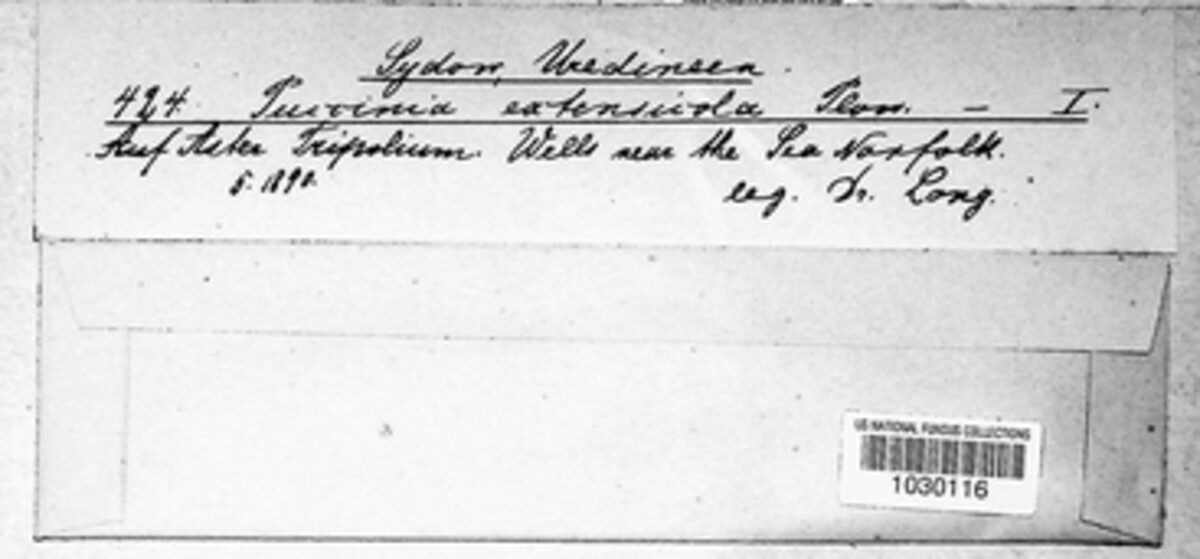 Sydow, Uredineen.
424. Puccinia extensicola Plow. — I.
Auf Aster Tripolium. Wells near the Sea Norfolk.
5. 1890.
leg. Dr. Long.
US NATIONAL FUNGUS COLLECTIONS
1030116